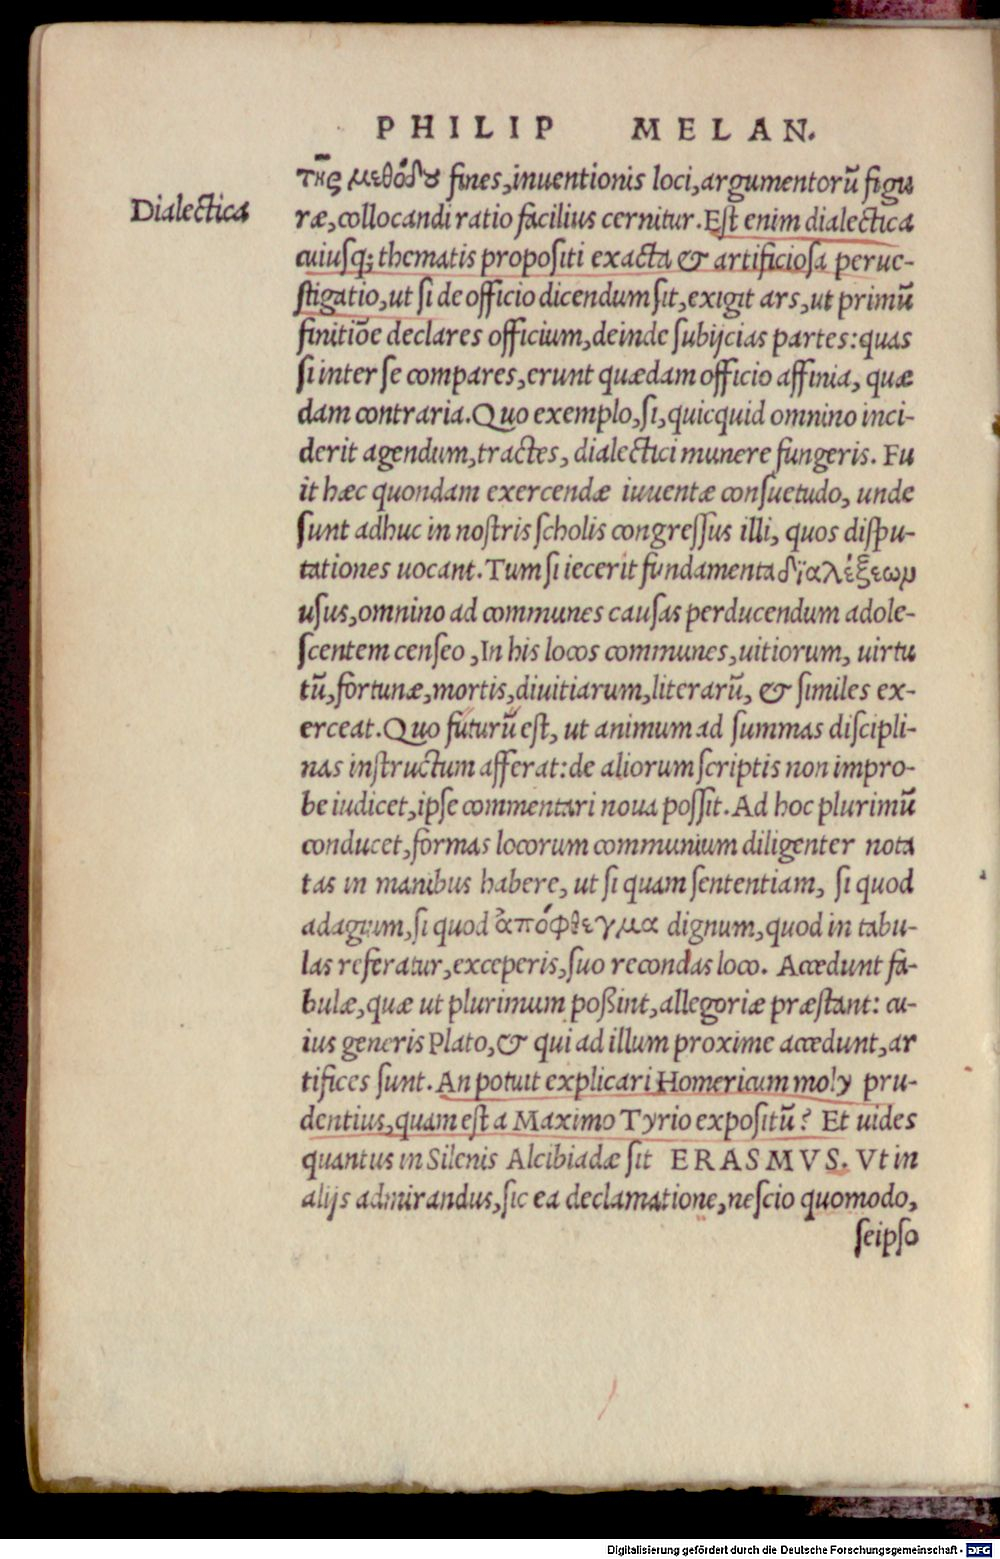 PHILIP MELAN.
τῆς μεθόδου fines, inuentionis loci, argumentorũ figu
Dialectica
ræ, collocandi ratio facilius cernitur. Est enim dialectica
cuiusq; thematis propositi exacta & artificiosa perue-
stigatio, ut si de officio dicendum sit, exigit ars, ut primũ
finitiõe declares officium, deinde subijcias partes: quas
si inter se compares, erunt quædam officio affinia, quæ
dam contraria. Quo exemplo, si, quicquid omnino inci-
derit agendum, tractes, dialectici munere fungeris. Fu
it hæc quondam exercendæ iuuentæ consuetudo, unde
sunt adhuc in nostris scholis congressus illi, quos dispu-
tationes uocant. Tum si iecerit fundamenta διαλέξεωμ
usus, omnino ad communes causas perducendum adole-
scentem censeo, In his locos communes, uitiorum, uirtu
tũ, fortunæ, mortis, diuitiarum, literarũ, & similes ex-
erceat. Quo futurũ est, ut animum ad summas discipli-
nas instructum afferat: de aliorum scriptis non impro-
be iudicet, ipse commentari noua possit. Ad hoc plurimũ
conducet, formas locorum communium diligenter nota
tas in manibus habere, ut si quam sententiam, si quod
adagium, si quod ἀπόφθεγμα dignum, quod in tabu-
las referatur, exceperis, suo recondas loco. Accedunt fa-
bulæ, quæ ut plurimum poßint, allegoriæ præstant: cu-
ius generis Plato, & qui ad illum proxime accedunt, ar
tifices sunt. An potuit explicari Homericum moly pru-
dentius, quam est a Maximo Tyrio expositũ? Et uides
quantus in Silenis Alcibiadæ sit ERASMVS. Vt in
alijs admirandus, sic ea declamatione, nescio quomodo,
seipso
Digitalisierung gefördert durch die Deutsche Forschungsgemeinschaft - DFG